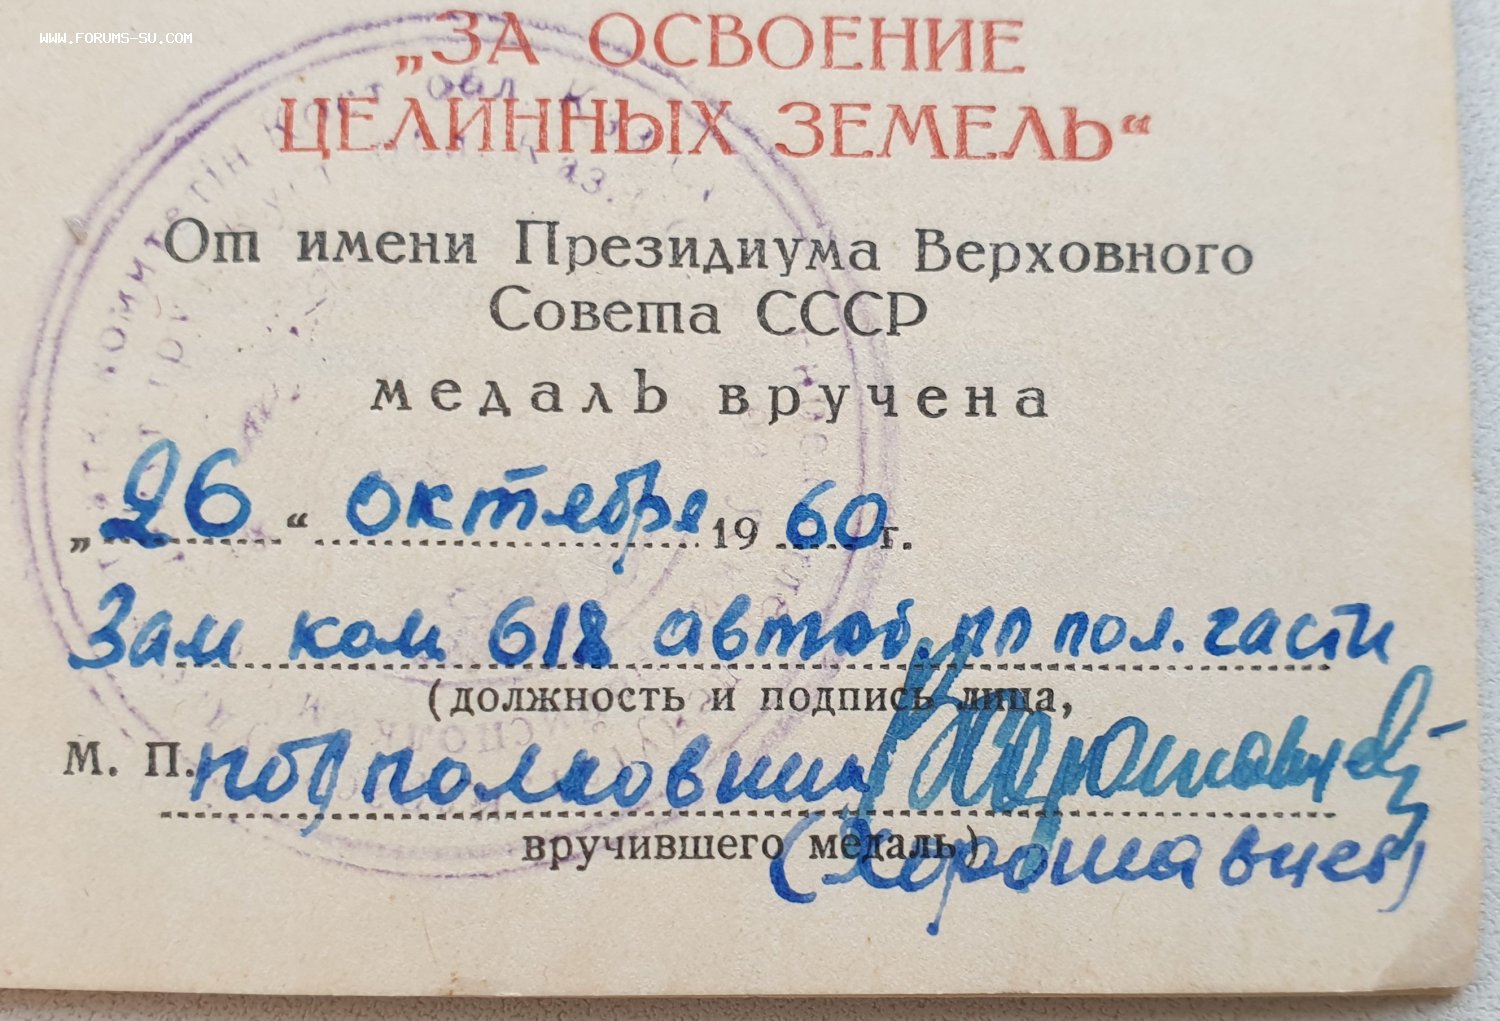 www.forums-su.com
„ЗА ОСВОЕНИЕ
ЦЕЛИННЫХ ЗЕМЕЛЬ“
От имени Президиума Верховного
Совета СССР
медаль вручена
„26“ октября 1960 г.
Зам ком 618 автоб. по пол. части
(должность и подпись лица,
М. П. подполковник Хорошавцев
вручившего медаль)
(Хорошавцев)